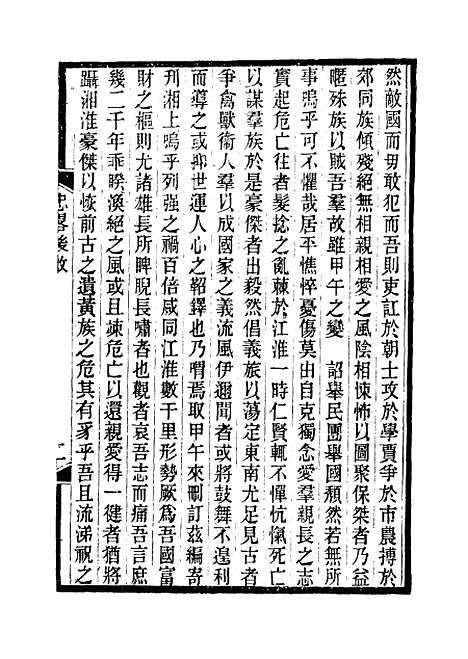 然敵國而毋敢犯而吾則吏訌於朝士攻於學賈爭於市農搏於
郊同族傾殘絕無相親相愛之風陰相悚怖以圖聚保桀者乃益
暱殊族以賊吾羣故雖甲午之變　詔舉民團舉國頹然若無所
事嗚乎可不懼哉居平憔悴憂傷莫由自克獨念愛羣親長之志
實起危亡往者髮捻之亂棘於江淮一時仁賢輒不憚忼愾死亡
以謀羣族於是豪傑者出毅然倡義旅以蕩定東南尤足見古者
爭禽獸衞人羣以成國家之義流風伊邇聞者或將鼓舞不遑利
而導之或抑世運人心之鞀鐸也乃喟焉取甲午來刪訂茲編寄
刋湘上嗚乎列强之禍百倍咸同江淮數千里形勢厥爲吾國富
財之樞則尤諸雄長所睥睨長嘯者也觀者哀吾志而痛吾言庶
幾二千年乖睽渙絕之風或且竦危亡以還親愛得一健者猶將
躡湘淮豪傑以恢前古之遺黃族之危其有豸乎吾且流涕祝之
後敘
二